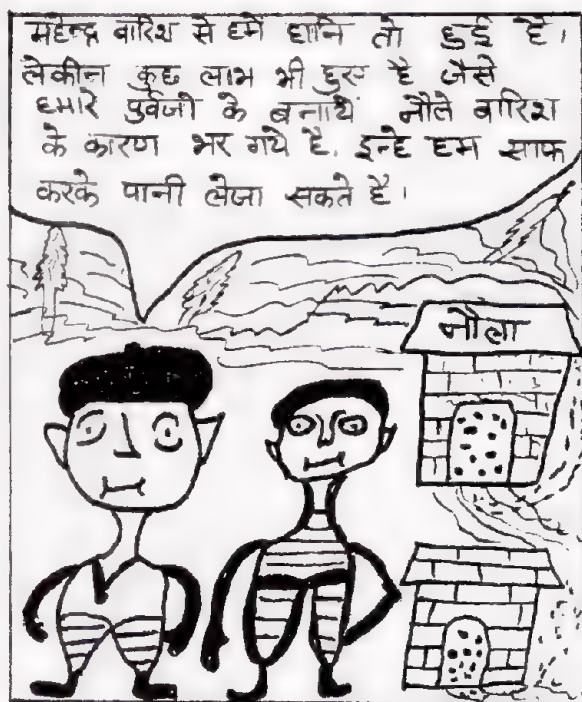 महेन्द्र बारिश से हमें हानि तो हुई है।
लेकीन कुछ लाभ भी हुए है जैसे
हमारे पुर्वजो के बनाये नौले बारिश
के कारण भर गये है. इन्हे हम साफ
करके पानी लेजा सकते है।
नौला